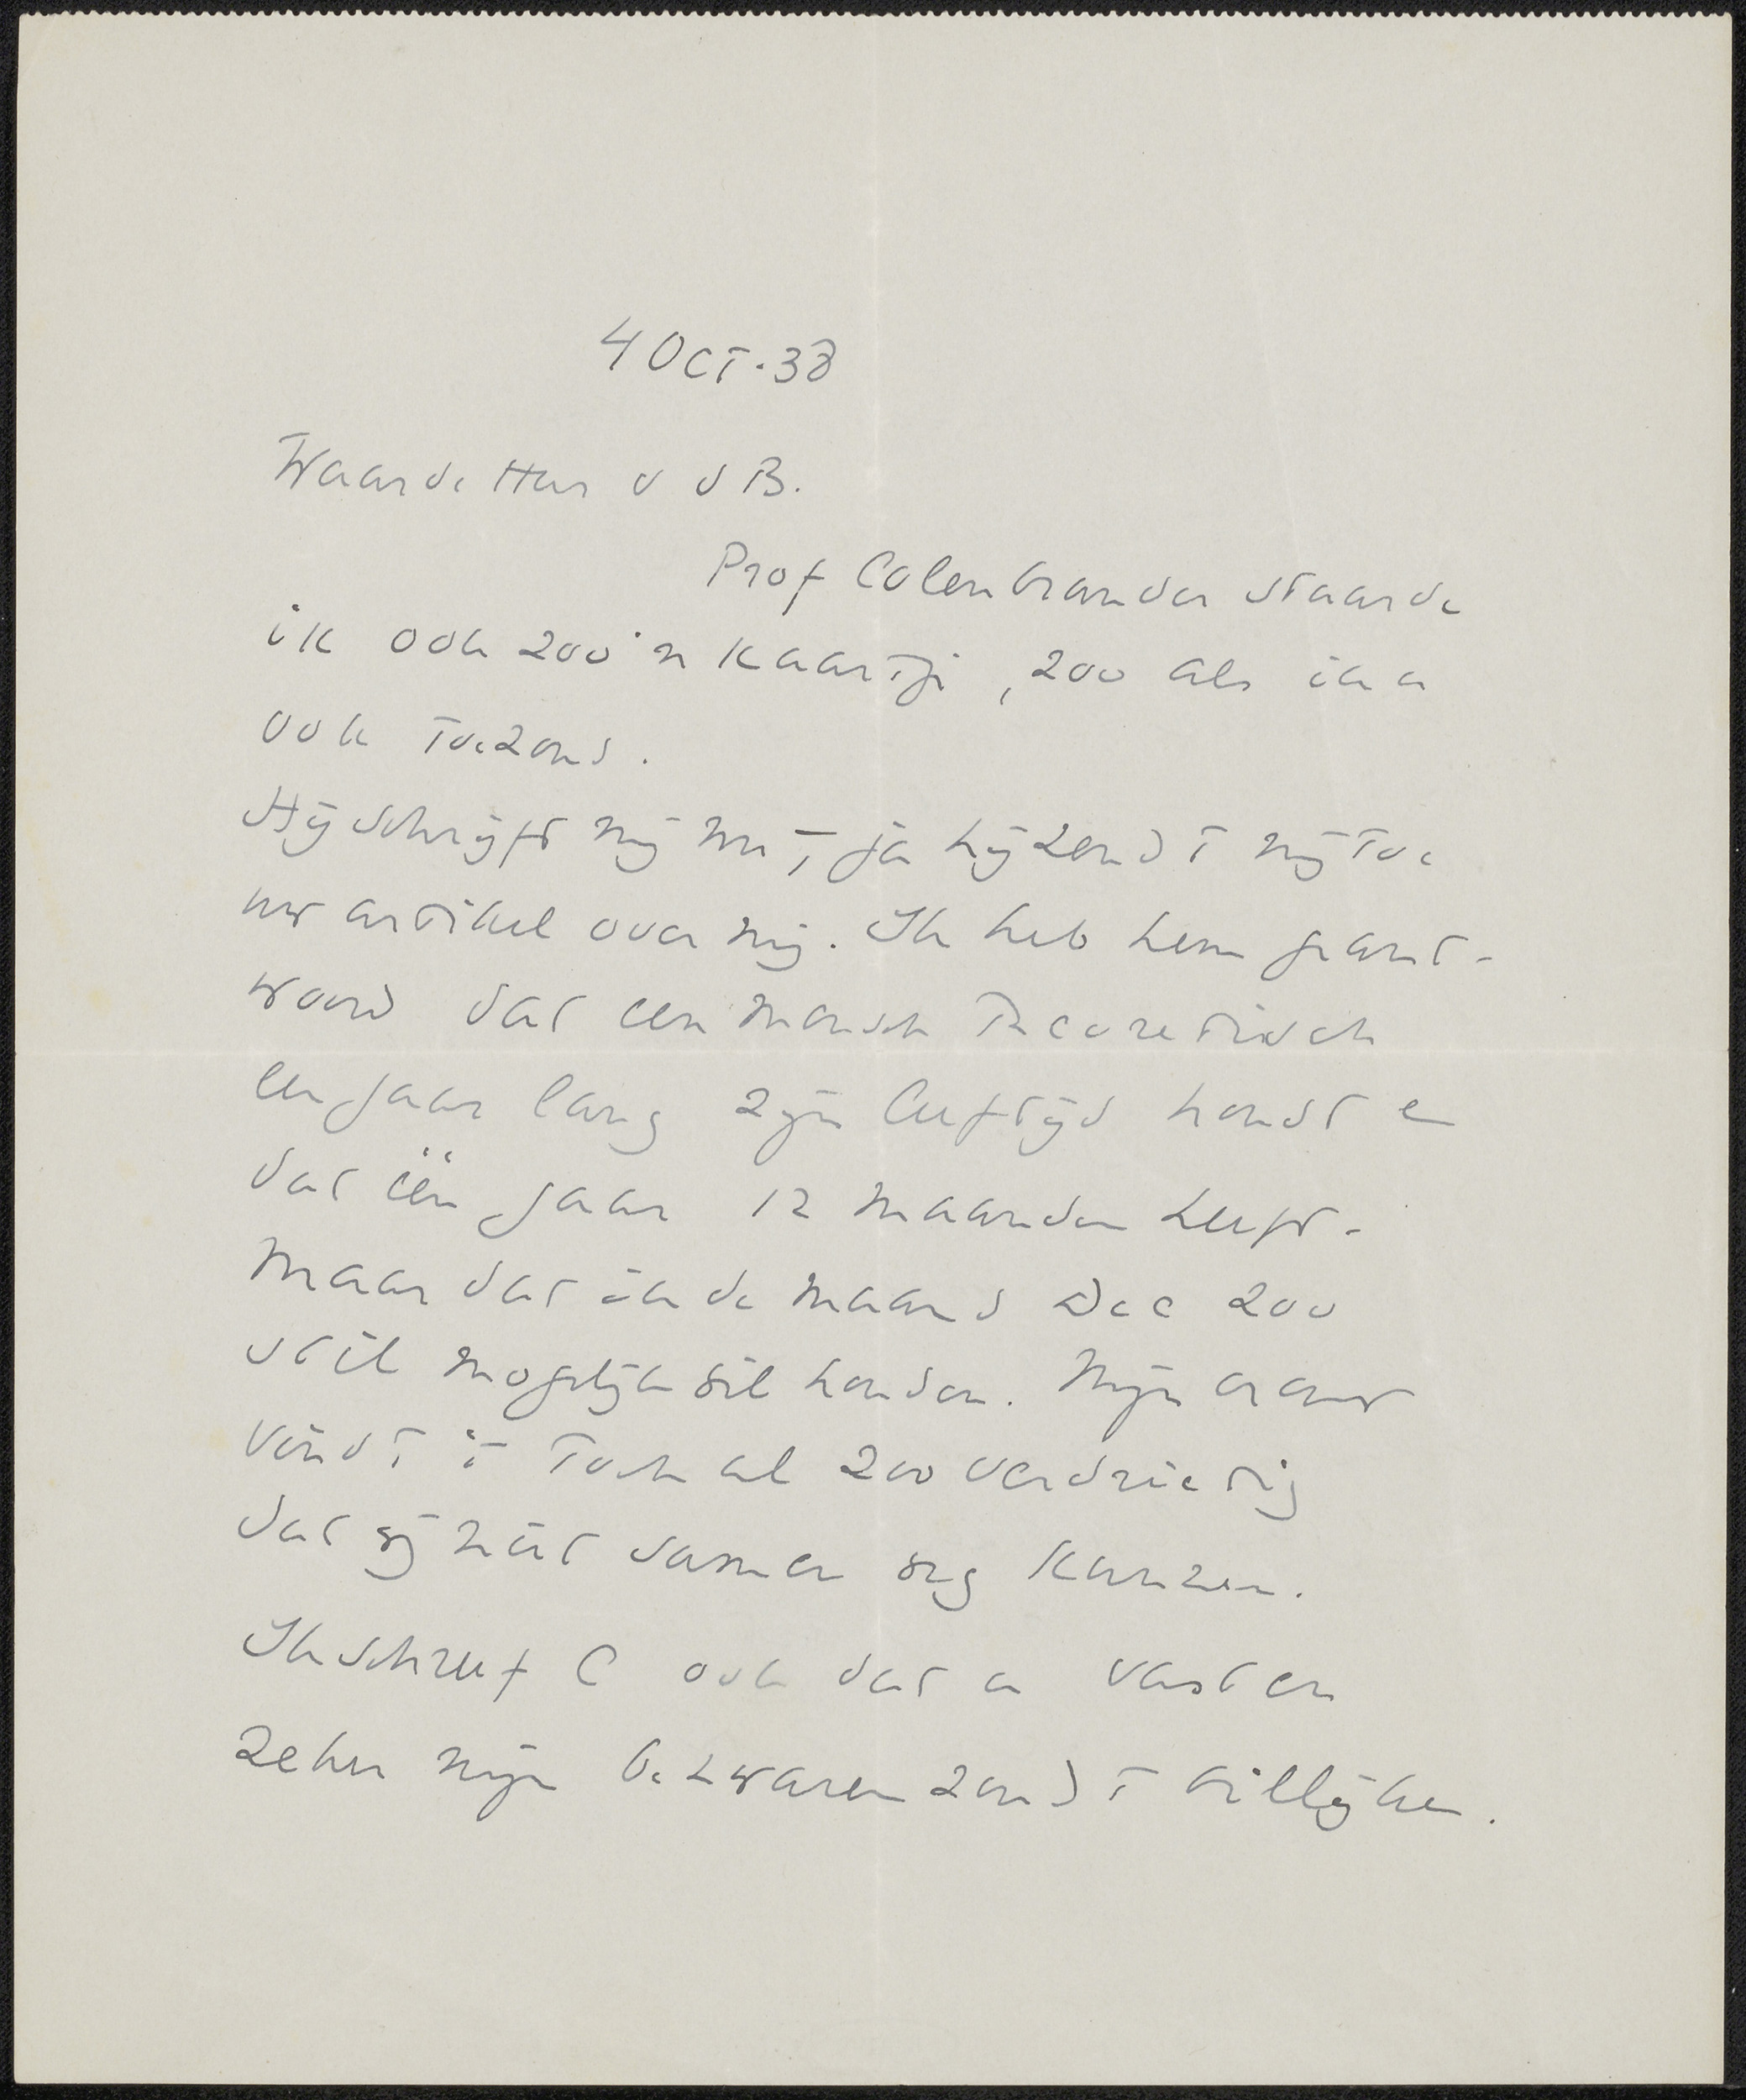 4 Oct. 38
Waarde Heer v d B.
Prof Colenbrander stuurde
ik ook zoo'n kaartje, zoo als ik u
ook toezond.
Hij schrijft mij nu, ja hij zendt mij toe
uw artikel over mij. Ik heb hem geant-
woord dat een mensch Theoretisch
een jaar lang zijn leeftijd houdt en
dat één jaar 12 maanden heeft.
Maar dat ik de maand Dec zoo
stil mogelijk stil houden. Mijn vrouw
vindt 't toch al zoo verdrietig
dat wij niet samen weg kunnen.
Ik schreef C ook dat u vast en
zeker mijn bezwaren zoudt billijken.